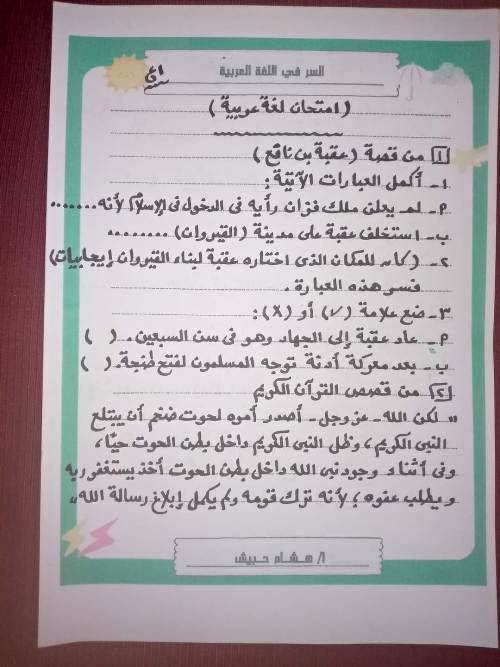 السر في اللغة العربية
(امتحان لغة عربية)
[1] من قصة (عقبة بن نافع)
١- أكمل العبارات الآتية:
٩- لم يعلن ملك فزان رأيه في الدخول في الإسلام لأنه .......
ب- استخلف عقبة على مدينة (القيروان) ........
٢- (كان للمكان الذى اختاره عقبة لبناء القيروان إيجابيات)
فسر هذه العبارة.
٣- ضع علامة (✓) أو (X):
٩- عاد عقبة إلى الجهاد وهو فى سن السبعين. ( )
ب- بعد معركة أدنة توجه المسلمون لفتح طنجة. ( )
[2] من قصص القرآن الكريم
"لكن الله - عز وجل - أصدر أمره لحوت ضخم أن يبتلع
النبى الكريم، وظل النبى الكريم داخل بطن الحوت حيًّا،
وفى أثناء وجود نبى الله داخل بطن الحوت أخذ يستغفر ربه
ويطلب عفوه؛ لأنه ترك قومه ولم يكمل إبلاغ رسالة الله"
أ/ هشام حبيش